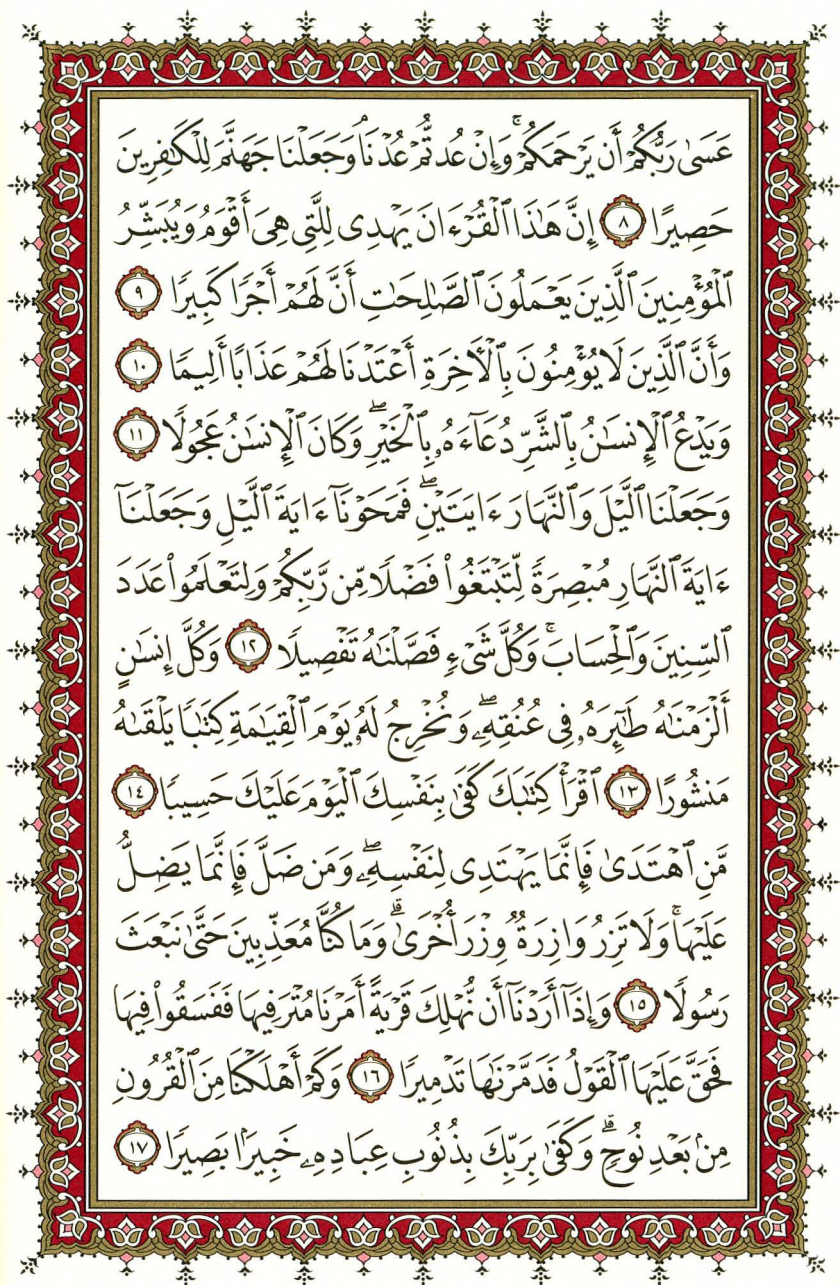 عَسَىٰ رَبُّكُمْ أَن يَرْحَمَكُمْ ۚ وَإِنْ عُدتُّمْ عُدْنَا ۘ وَجَعَلْنَا جَهَنَّمَ لِلْكَٰفِرِينَ
حَصِيرًا ٨ إِنَّ هَٰذَا ٱلْقُرْءَانَ يَهْدِى لِلَّتِى هِىَ أَقْوَمُ وَيُبَشِّرُ
ٱلْمُؤْمِنِينَ ٱلَّذِينَ يَعْمَلُونَ ٱلصَّٰلِحَٰتِ أَنَّ لَهُمْ أَجْرًا كَبِيرًا ٩
وَأَنَّ ٱلَّذِينَ لَا يُؤْمِنُونَ بِٱلْأَخِرَةِ أَعْتَدْنَا لَهُمْ عَذَابًا أَلِيمًا ١٠
وَيَدْعُ ٱلْإِنسَٰنُ بِٱلشَّرِّ دُعَآءَهُۥ بِٱلْخَيْرِ ۖ وَكَانَ ٱلْإِنسَٰنُ عَجُولًا ١١
وَجَعَلْنَا ٱلَّيْلَ وَٱلنَّهَارَ ءَايَتَيْنِ ۖ فَمَحَوْنَآ ءَايَةَ ٱلَّيْلِ وَجَعَلْنَآ
ءَايَةَ ٱلنَّهَارِ مُبْصِرَةً لِّتَبْتَغُوا۟ فَضْلًا مِّن رَّبِّكُمْ وَلِتَعْلَمُوا۟ عَدَدَ
ٱلسِّنِينَ وَٱلْحِسَابَ ۚ وَكُلَّ شَىْءٍ فَصَّلْنَٰهُ تَفْصِيلًا ١٢ وَكُلَّ إِنسَٰنٍ
أَلْزَمْنَٰهُ طَٰٓئِرَهُۥ فِى عُنُقِهِۦ ۖ وَنُخْرِجُ لَهُۥ يَوْمَ ٱلْقِيَٰمَةِ كِتَٰبًا يَلْقَىٰهُ
مَنشُورًا ١٣ ٱقْرَأْ كِتَٰبَكَ كَفَىٰ بِنَفْسِكَ ٱلْيَوْمَ عَلَيْكَ حَسِيبًا ١٤
مَّنِ ٱهْتَدَىٰ فَإِنَّمَا يَهْتَدِى لِنَفْسِهِۦ ۖ وَمَن ضَلَّ فَإِنَّمَا يَضِلُّ
عَلَيْهَا ۚ وَلَا تَزِرُ وَازِرَةٌ وِزْرَ أُخْرَىٰ ۗ وَمَا كُنَّا مُعَذِّبِينَ حَتَّىٰ نَبْعَثَ
رَسُولًا ١٥ وَإِذَآ أَرَدْنَآ أَن نُّهْلِكَ قَرْيَةً أَمَرْنَا مُتْرَفِيهَا فَفَسَقُوا۟ فِيهَا
فَحَقَّ عَلَيْهَا ٱلْقَوْلُ فَدَمَّرْنَٰهَا تَدْمِيرًا ١٦ وَكَمْ أَهْلَكْنَا مِنَ ٱلْقُرُونِ
مِنۢ بَعْدِ نُوحٍ ۗ وَكَفَىٰ بِرَبِّكَ بِذُنُوبِ عِبَادِهِۦ خَبِيرًۢا بَصِيرًا ١٧